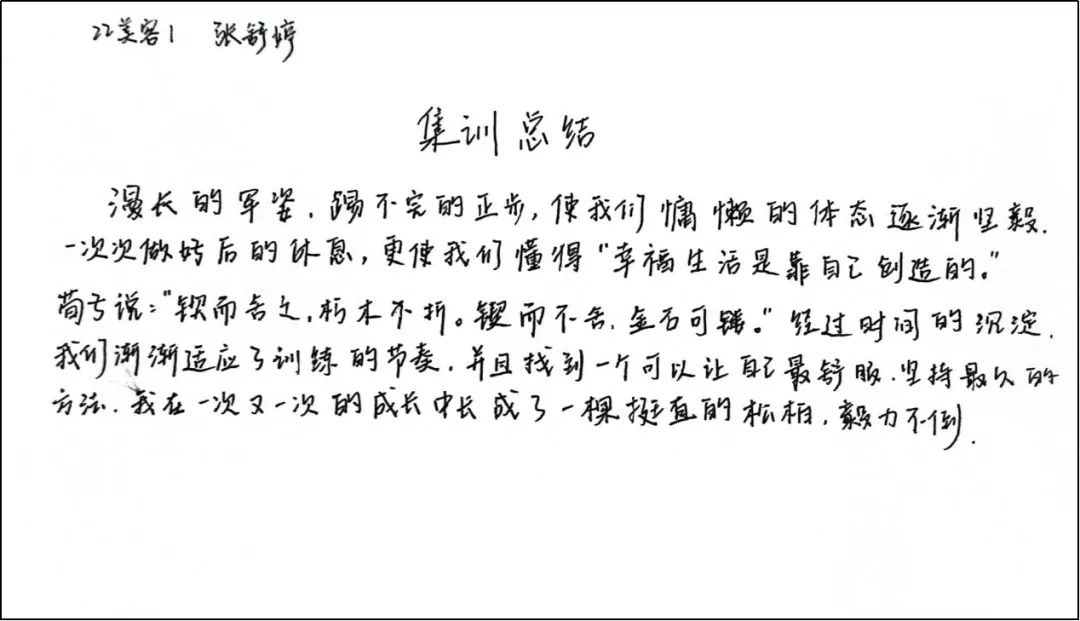 22美容1 张舒婷
集训总结
漫长的军姿，踢不完的正步，使我们慵懒的体态逐渐坚毅.
一次次做好后的休息，更使我们懂得“幸福生活是靠自己创造的。”
荀子说：“锲而舍之，朽木不折。锲而不舍，金石可镂。”经过时间的沉淀.
我们渐渐适应了训练的节奏，并且找到一个可以让自己最舒服.坚持最久的
方法.我在一次又一次的成长中长成了一棵挺直的松柏，毅力不倒.